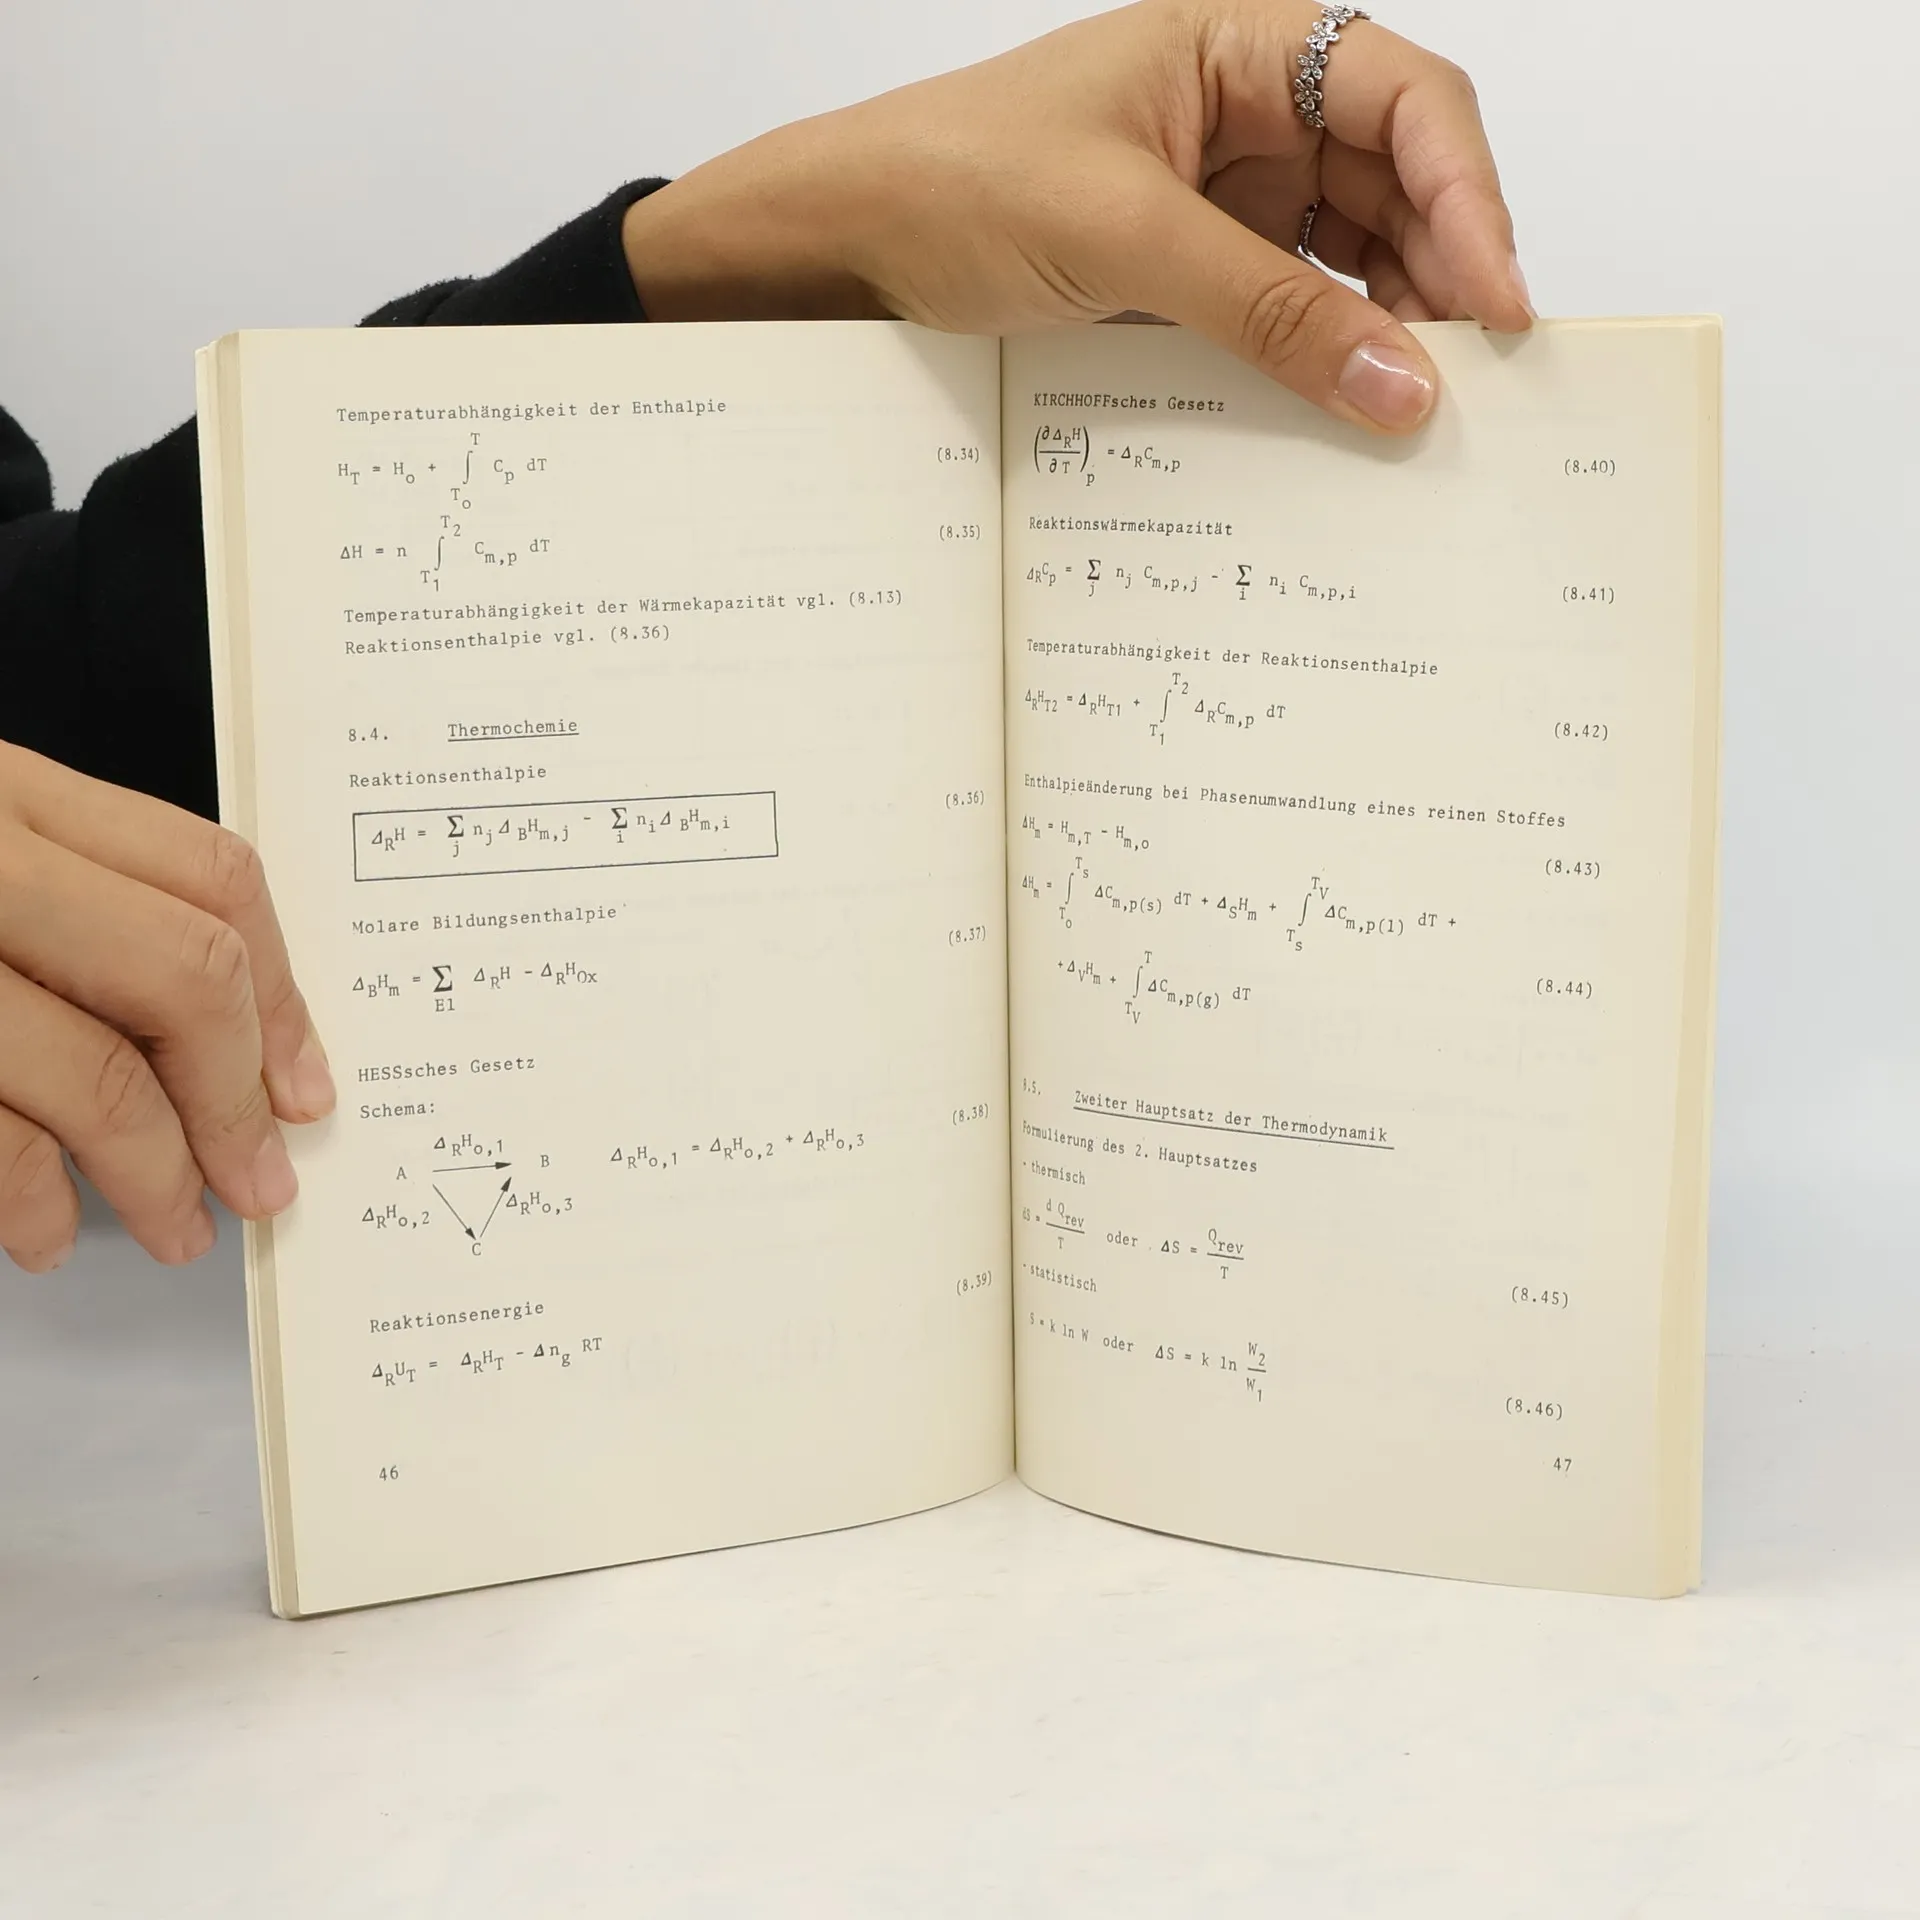 Temperaturabhängigkeit der Enthalpie
H_T = H_o + ∫_{T_o}^{T} C_p dT (8.34)
ΔH = n ∫_{T_1}^{T_2} C_{m,p} dT (8.35)
Temperaturabhängigkeit der Wärmekapazität vgl. (8.13)
Reaktionsenthalpie vgl. (8.36)
8.4. Thermochemie
Reaktionsenthalpie
Δ_R H = Σ_j n_j Δ_B H_{m,j} - Σ_i n_i Δ_B H_{m,i} (8.36)
Molare Bildungsenthalpie
Δ_B H_m = Σ_{El} Δ_R H - Δ_R H_{Ox} (8.37)
HESSsches Gesetz
Schema: (8.38)
Δ_R H_{o,1}
A B Δ_R H_{o,1} = Δ_R H_{o,2} + Δ_R H_{o,3}
Δ_R H_{o,2} Δ_R H_{o,3}
C
Reaktionsenergie (8.39)
Δ_R U_T = Δ_R H_T - Δn_g RT
46
KIRCHHOFFsches Gesetz
(∂Δ_R H / ∂T)_p = Δ_R C_{m,p} (8.40)
Reaktionswärmekapazität
Δ_R C_p = Σ_j n_j C_{m,p,j} - Σ_i n_i C_{m,p,i} (8.41)
Temperaturabhängigkeit der Reaktionsenthalpie
Δ_R H_{T2} = Δ_R H_{T1} + ∫_{T_1}^{T_2} Δ_R C_{m,p} dT (8.42)
Enthalpieänderung bei Phasenumwandlung eines reinen Stoffes
ΔH_m = H_{m,T} - H_{m,o} (8.43)
ΔH_m = ∫_{T_o}^{T_s} ΔC_{m,p(s)} dT + Δ_S H_m + ∫_{T_s}^{T_V} ΔC_{m,p(l)} dT +
+ Δ_V H_m + ∫_{T_V}^{T} ΔC_{m,p(g)} dT (8.44)
8.5. Zweiter Hauptsatz der Thermodynamik
Formulierung des 2. Hauptsatzes
· thermisch
dS = d Q_{rev} / T oder ΔS = Q_{rev} / T (8.45)
· statistisch
S = k ln W oder ΔS = k ln W_2 / W_1 (8.46)
47